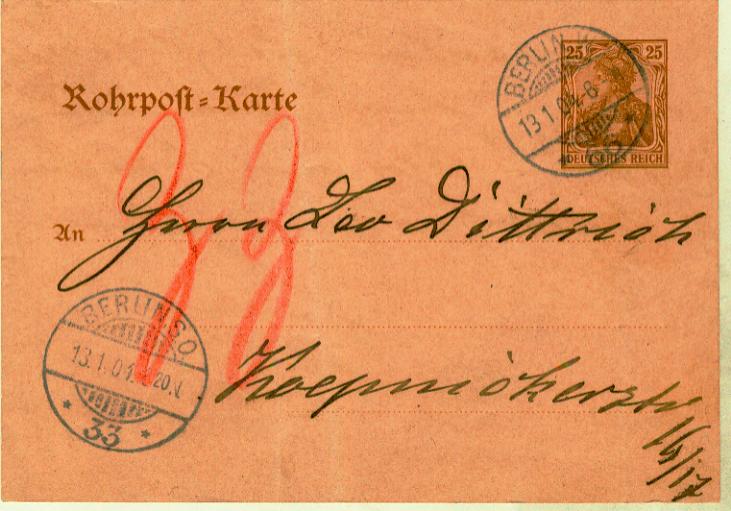 BERLIN W
13.1.01. 6
25 25
DEUTSCHES REICH
Rohrpost-Karte
An Herrn Leo Dittrich
33
BERLIN S.O.
13.1.01. 20.V.
* 33 *
Koepnickerstr
16/17